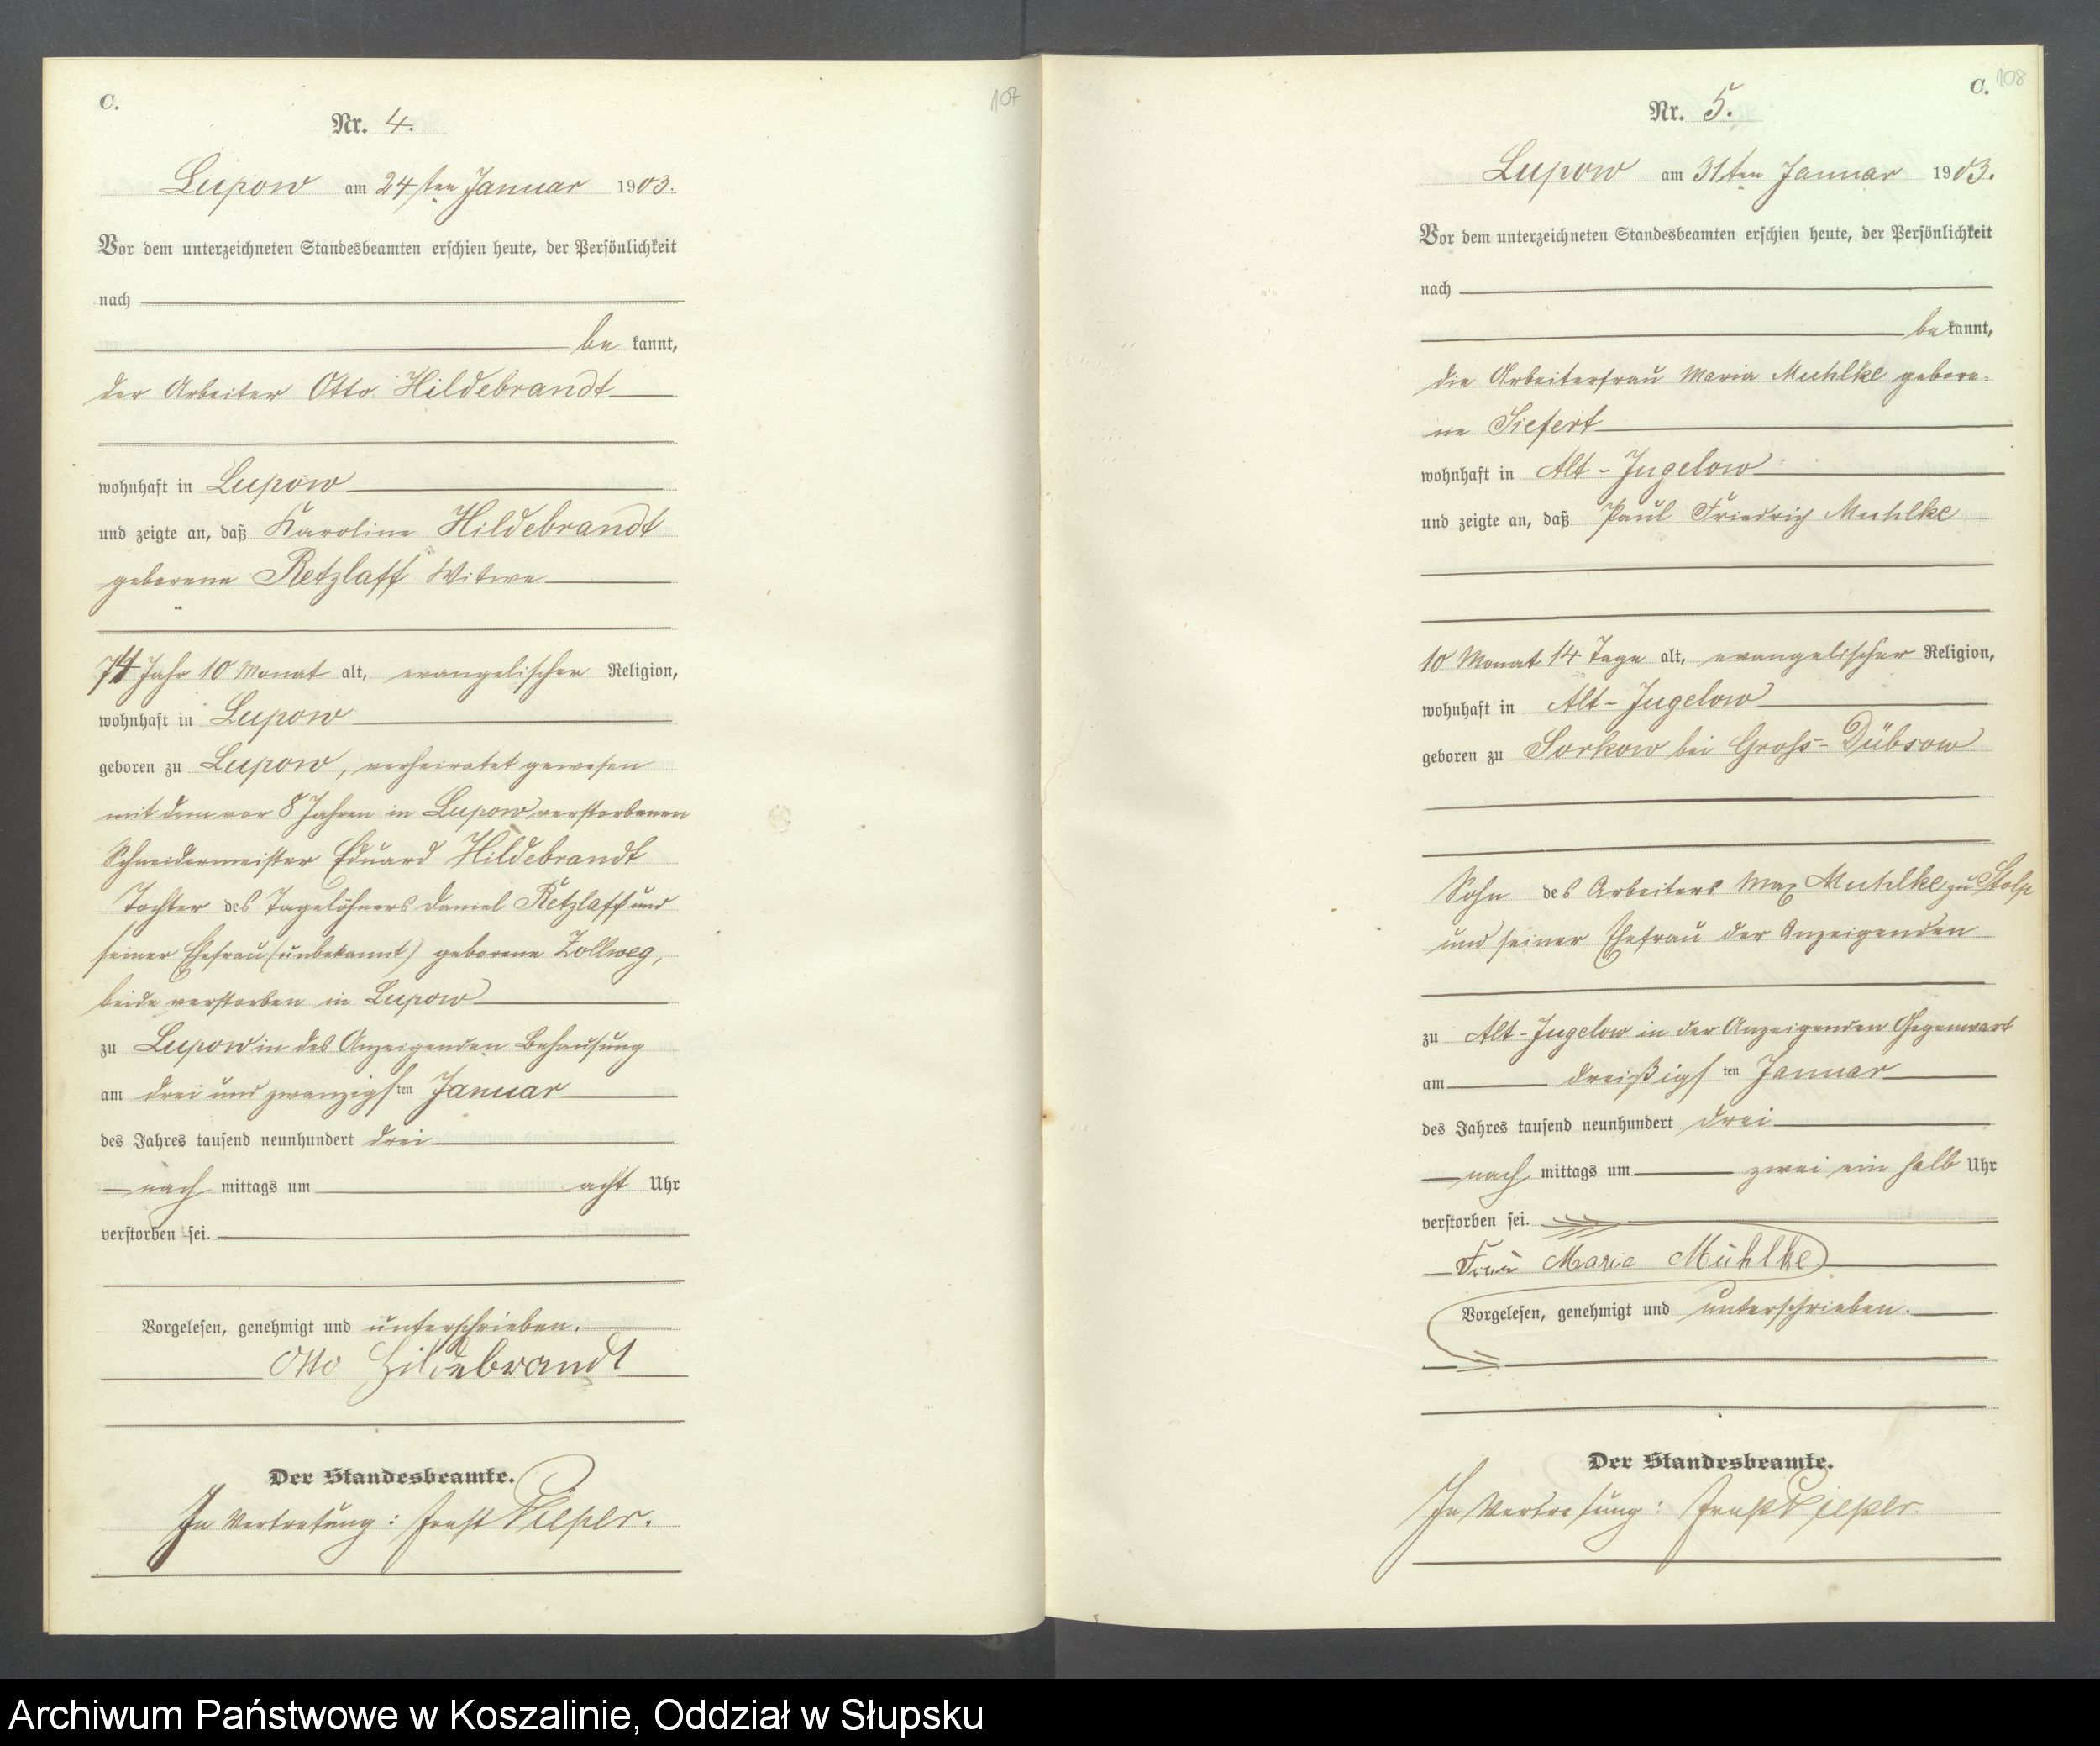 C.
107
Nr. 4.
Lupow am 24ten Januar 1903.
Vor dem unterzeichneten Standesbeamten erschien heute, der Persönlichkeit
nach
be kannt,
der Arbeiter Otto Hildebrandt
wohnhaft in Lupow
und zeigte an, daß Karoline Hildebrandt
geborene Retzlaff Witwe
74 Jahr 10 Monat alt, evangelischer Religion,
wohnhaft in Lupow
geboren zu Lupow, verheiratet gewesen
mit dem vor 8 Jahren in Lupow verstorbenen
Schneidermeister Eduard Hildebrandt
Tochter des Tagelöhners Daniel Retzlaff und
seiner Ehefrau (unbekannt) geborene Zollweg,
beide verstorben in Lupow
zu Lupow in des Anzeigenden Behausung
am drei und zwanzigsten Januar
des Jahres tausend neunhundert drei
nach mittags um acht Uhr
verstorben sei.
Vorgelesen, genehmigt und unterschrieben.
Otto Hildebrandt
Der Standesbeamte.
In Vertretung: Ernst Pieper.
C.
108
Nr. 5.
Lupow am 31ten Januar 1903.
Vor dem unterzeichneten Standesbeamten erschien heute, der Persönlichkeit
nach
be kannt,
die Arbeiterfrau Maria Muhlke gebore-
ne Siefert
wohnhaft in Alt-Jugelow
und zeigte an, daß Paul Friedrich Muhlke
10 Monat 14 Tage alt, evangelischer Religion,
wohnhaft in Alt-Jugelow
geboren zu Sorkow bei Groß-Dübsow
Sohn des Arbeiters Max Muhlke zu Stolp
und seiner Ehefrau der Anzeigenden
zu Alt-Jugelow in der Anzeigenden Gegenwart
am dreißigsten Januar
des Jahres tausend neunhundert drei
nach mittags um zwei ein halb Uhr
verstorben sei.
Frau Marie Mühlke
Vorgelesen, genehmigt und unterschrieben.
Der Standesbeamte.
In Vertretung: Ernst Pieper.
Archiwum Państwowe w Koszalinie, Oddział w Słupsku